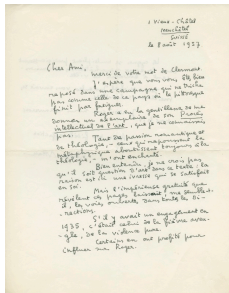 2 Vieux-Châtel
Neuchâtel
Suisse
le 8 août 1937
Cher Ami,
merci de votre mot de Clermont.
J'espère que vous vous êtes bien
reposé dans une campagne qui ne
pas comme celle de ce pays, de la
finit par fatiguer.
Roger a eu la gentillesse de me
donner un exemplaire de son Procès
intellectuel de l'art, que je ne connaissais
pas.
Tant de passion romantique et
de théologie, - ceux qui
aboutissent toujours à la
théologie, - m'ont enchanté.
Bien entendu, je ne crois pas
qu'il soit question d'art dans ce texte, la
raison est une ivresse qui se satisfait
en soi.
Mais l'ingénieuse gratuité que
révèlent ces pages,
les voies ouvertes dans toutes les Di-
rections.
S'il y avait un engagement en
1935, c'était celui de la fièvre aveu-
gle, de la violence pure.
Certains en ont profité pour
influencer Roger.